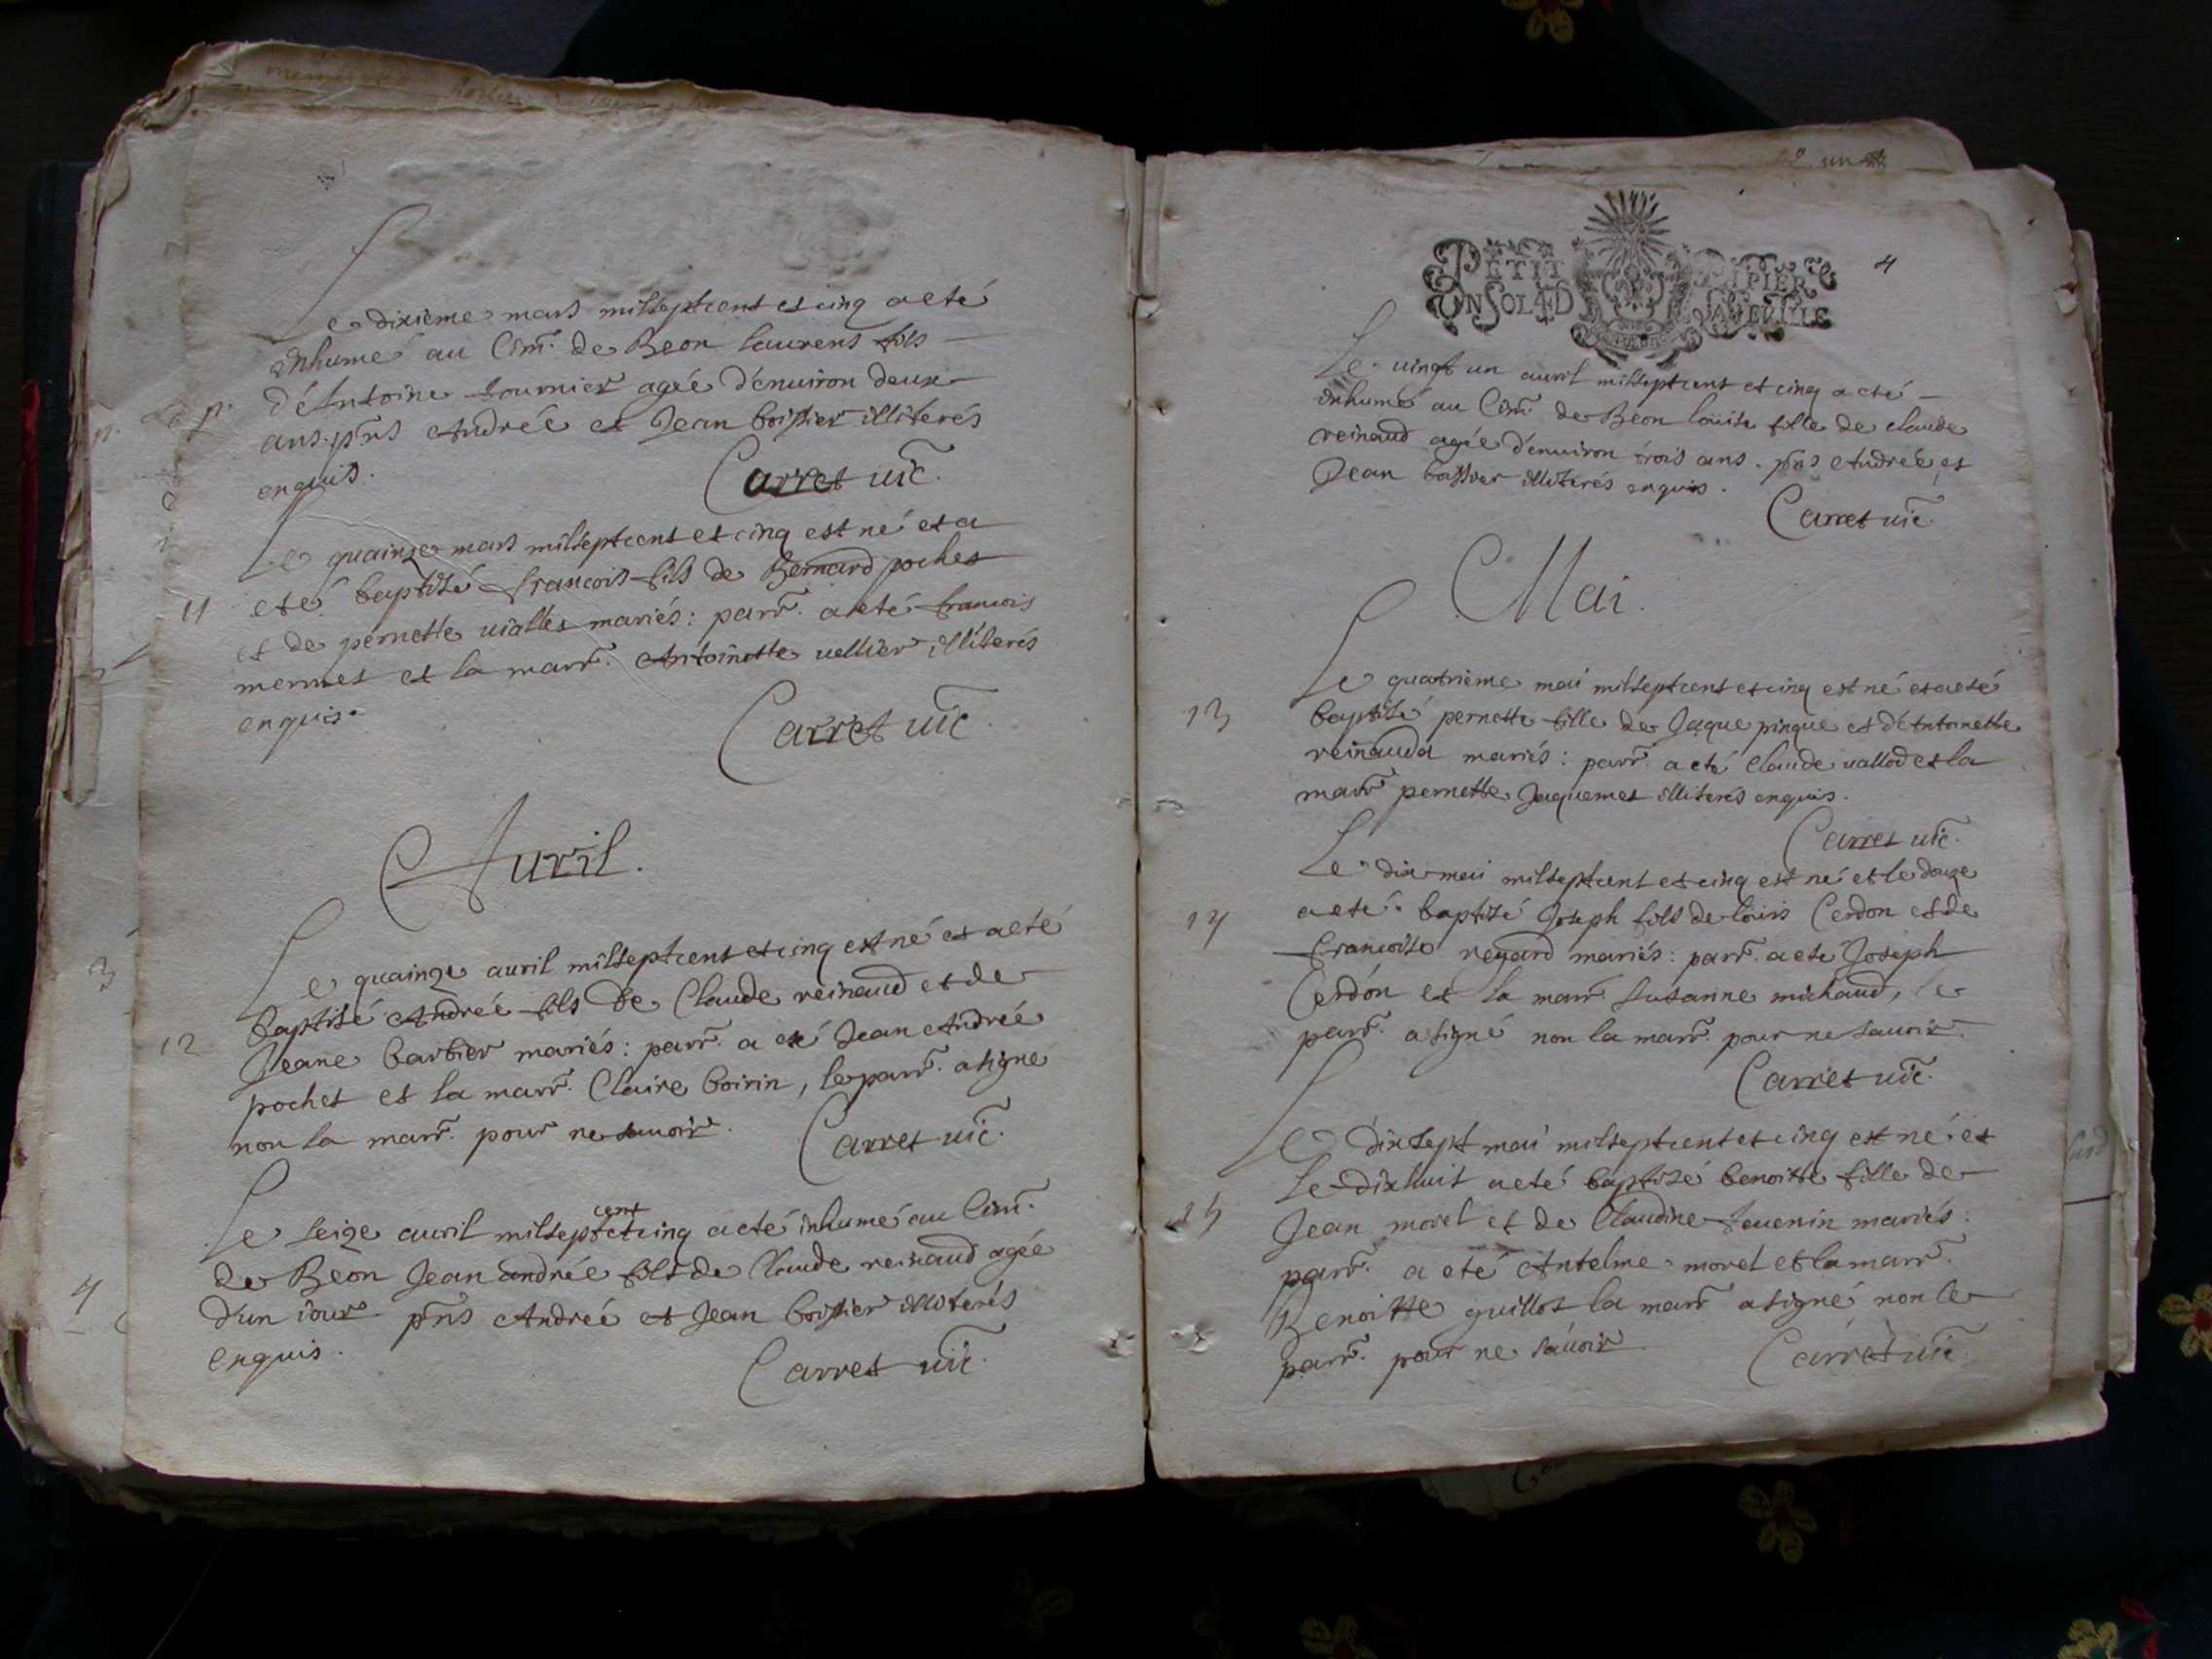 Le dixième mars mil sept cent et cinq a eté
inhumé au Cim. de Beon laurens fils
d'Antoine fournier agée d'enuiron deux
ans. pñs Andrée et Jean boissier illiterés
enquis.
Carret vic.
Le quainze mars mil sept cent et cinq est né et a
11 eté baptisé francois fils de Bernard pochet
et de pernette uialles mariés: parr. a eté francois
mermet et la marr. Antoinette vellier illiterés
enquis.
Carret vic.
Auril.
Le quainze auril mil sept cent et cinq est né et a eté
baptisé Andrée fils de Claude reinaud et de
12 Jeane barbier mariés: parr. a eté Jean Andrée
pochet et la marr. Claire boirin, le parr. a signé
non la marr. pour ne sauoir.
Carret vic.
cent
Le seize auril mil sept et cinq a eté inhumé au Cim.
de Beon Jean andrée fils de Claude reinaud agée
4 d'un iour pñs Andrée et Jean boissier illiterés
enquis.
Carret vic.
4
PETIT PAPIER
UN SOL 4 D LA FEUILLE
Le uingt un auril mil sept cent et cinq a eté
inhumé au Cim. de Beon louise fille de claude
reinaud agée d'enuiron trois ans. pñs Andrée et
Jean boissier illiterés enquis.
Carret vic.
Mai.
Le quatrième mai mil sept cent et cinq est né et a eté
13 baptisé pernette fille de Jaque pinque et d'Antoinette
reinaud mariés: parr. a eté Claude vallod et la
marr. pernette Jaquemet illiterés enquis.
Carret vic.
Le dix mai mil sept cent et cinq est né et le douze
14 a eté baptisé Joseph fils de loüis Cerdon et de
francoise regard mariés: parr. a eté Joseph
Cerdon et la marr. Susanne michaud, le
parr. a signé non la marr. pour ne sauoir.
Carret vic.
Le dix sept mai mil sept cent et cinq est né et
Le dix huit a eté baptisé benoitte fille de
15 Jean morel et de Claudine teuenin mariés:
parr. a eté Antelme morel et la marr.
Benoitte guillot la marr. a signé non le
parr. pour ne sauoir.
Carret vic.